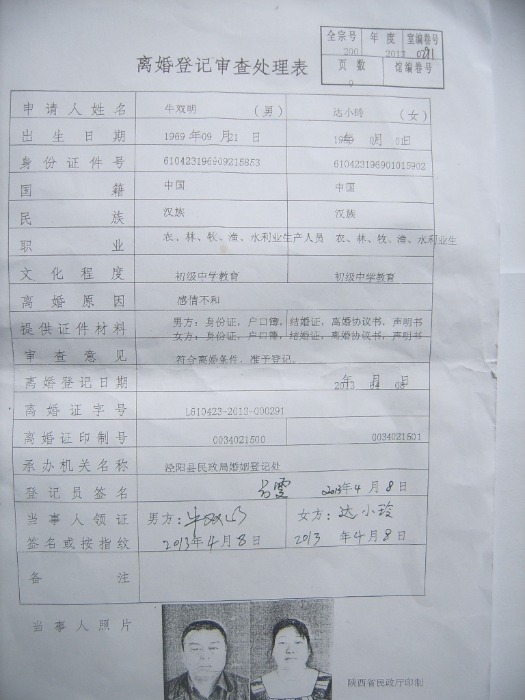 全宗号 年 度 室编卷号
200 2013 0291
页 数 馆编卷号
离婚登记审查处理表
申请人姓名 牛双明 (男) 达小玲 (女)
出生日期 1969 年 09 月 21 日
身份证件号 610423196909215853 610423196901015902
国籍 中国 中国
民族 汉族 汉族
职业 农、林、牧、渔、水利业生产人员 农、林、牧、渔、水利业生
文化程度 初级中学教育 初级中学教育
离婚原因 感情不和
提供证件材料 男方:身份证,户口簿,结婚证,离婚协议书,声明书
女方:身份证,户口簿,结婚证,离婚协议书,声明书
审查意见 符合离婚条件,准予登记。
离婚登记日期 2013 年 04 月 08 日
离婚证字号 L610423-2013-000291
离婚证印制号 0034021500 0034021501
承办机关名称 泾阳县民政局婚姻登记处
登记员签名 2013年4月8日
当事人领证 男方:牛双明 女方:达小玲
签名或按指纹 2013年4月8日 2013 年4月8日
备注
当事人照片
陕西省民政厅印制